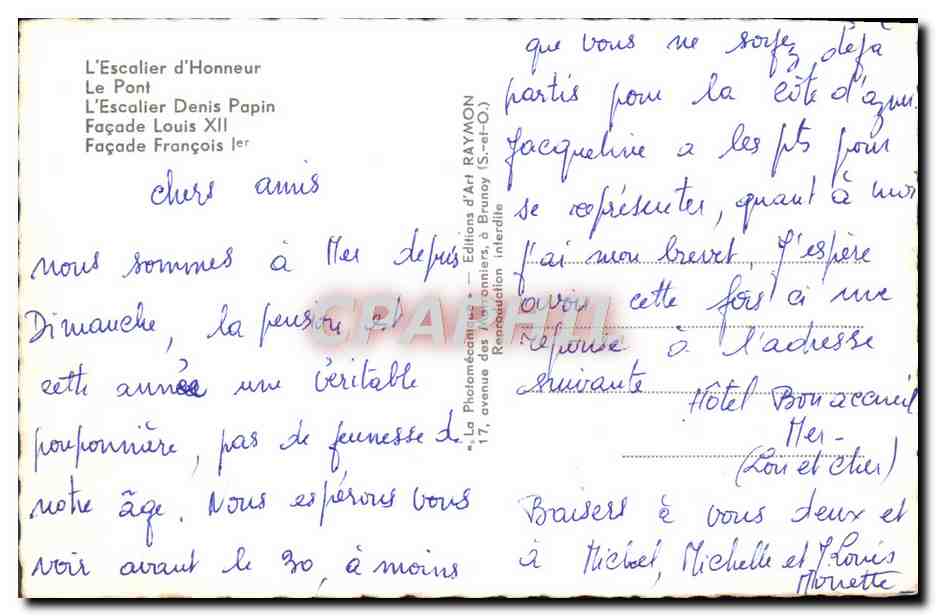 L'Escalier d'Honneur
Le Pont
L'Escalier Denis Papin
Façade Louis XII
Façade François Ier
chers amis
nous sommes à Mer depuis
Dimanche, la pension est
cette année une véritable
pouponnière, pas de jeunesse de
notre âge. Nous espérons vous
voir avant le 30, à moins
"La Photomécanique" — Editions d'Art RAYMON
17, avenue des Marronniers, à Brunoy (S.-et-O.)
Reproduction interdite
que vous ne soyez déjà
partis pour la côte d'azur.
Jacqueline a les pts pour
se représenter, quant à moi
j'ai mon brevet. J'espère
avoir cette fois ci une
réponse à l'adresse
suivante
Hôtel Bon accueil
Mer -
(Loir et cher)
Baisers à vous deux et
à Michel, Michelle et J. Louis
CPARHIL